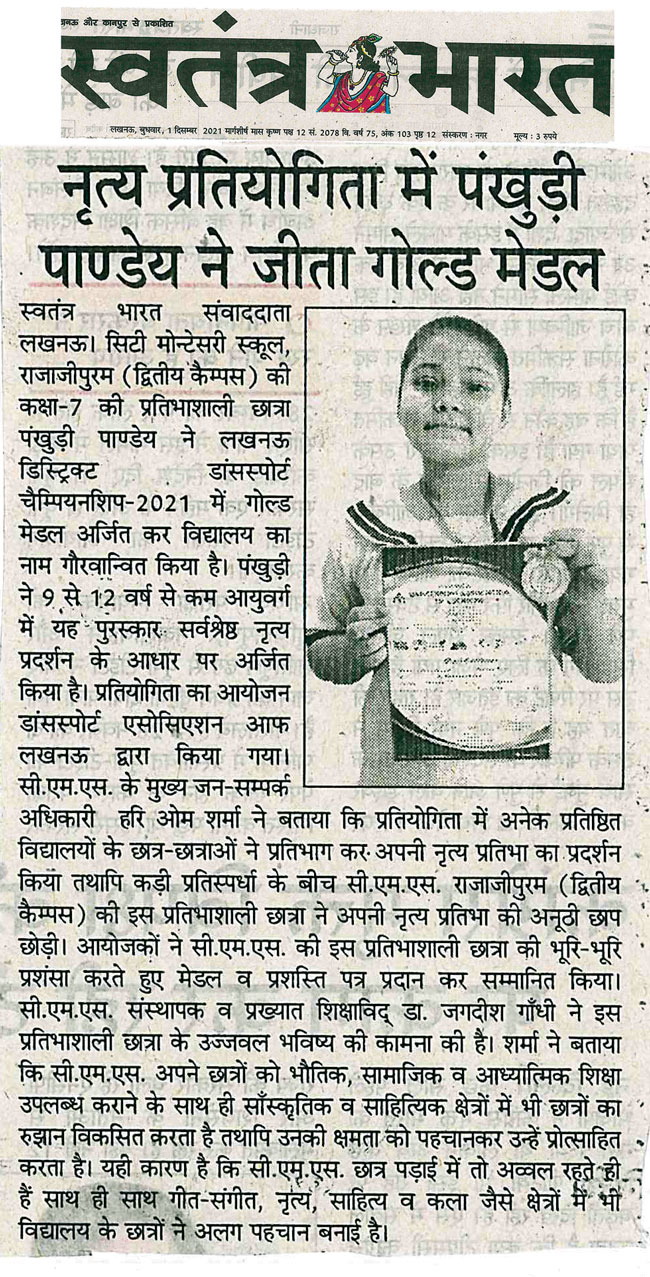 लखनऊ और कानपुर से प्रकाशित
स्वतंत्र भारत
लखनऊ, बुधवार, 1 दिसम्बर 2021 मार्गशीर्ष मास कृष्ण पक्ष 12 सं. 2078 वि. वर्ष 75, अंक 103 पृष्ठ 12 संस्करण : नगर मूल्य : 3 रुपये
नृत्य प्रतियोगिता में पंखुड़ी
पाण्डेय ने जीता गोल्ड मेडल
स्वतंत्र भारत संवाददाता
लखनऊ। सिटी मोन्टेसरी स्कूल,
राजाजीपुरम (द्वितीय कैम्पस) की
कक्षा-7 की प्रतिभाशाली छात्रा
पंखुड़ी पाण्डेय ने लखनऊ
डिस्ट्रिक्ट डांसस्पोर्ट
चैम्पियनशिप-2021 में गोल्ड
मेडल अर्जित कर विद्यालय का
नाम गौरवान्वित किया है। पंखुड़ी
ने 9 से 12 वर्ष से कम आयुवर्ग
में यह पुरस्कार सर्वश्रेष्ठ नृत्य
प्रदर्शन के आधार पर अर्जित
किया है। प्रतियोगिता का आयोजन
डांसस्पोर्ट एसोसिएशन आफ
लखनऊ द्वारा किया गया।
सी.एम.एस. के मुख्य जन-सम्पर्क
अधिकारी हरि ओम शर्मा ने बताया कि प्रतियोगिता में अनेक प्रतिष्ठित
विद्यालयों के छात्र-छात्राओं ने प्रतिभाग कर अपनी नृत्य प्रतिभा का प्रदर्शन
किया तथापि कड़ी प्रतिस्पर्धा के बीच सी.एम.एस. राजाजीपुरम (द्वितीय
कैम्पस) की इस प्रतिभाशाली छात्रा ने अपनी नृत्य प्रतिभा की अनूठी छाप
छोड़ी। आयोजकों ने सी.एम.एस. की इस प्रतिभाशाली छात्रा की भूरि-भूरि
प्रशंसा करते हुए मेडल व प्रशस्ति पत्र प्रदान कर सम्मानित किया।
सी.एम.एस. संस्थापक व प्रख्यात शिक्षाविद् डा. जगदीश गाँधी ने इस
प्रतिभाशाली छात्रा के उज्जवल भविष्य की कामना की है। शर्मा ने बताया
कि सी.एम.एस. अपने छात्रों को भौतिक, सामाजिक व आध्यात्मिक शिक्षा
उपलब्ध कराने के साथ ही साँस्कृतिक व साहित्यिक क्षेत्रों में भी छात्रों का
रुझान विकसित करता है तथापि उनकी क्षमता को पहचानकर उन्हें प्रोत्साहित
करता है। यही कारण है कि सी.एम.एस. छात्र पड़ाई में तो अव्वल रहते ही
हैं साथ ही साथ गीत-संगीत, नृत्य, साहित्य व कला जैसे क्षेत्रों में भी
विद्यालय के छात्रों ने अलग पहचान बनाई है।